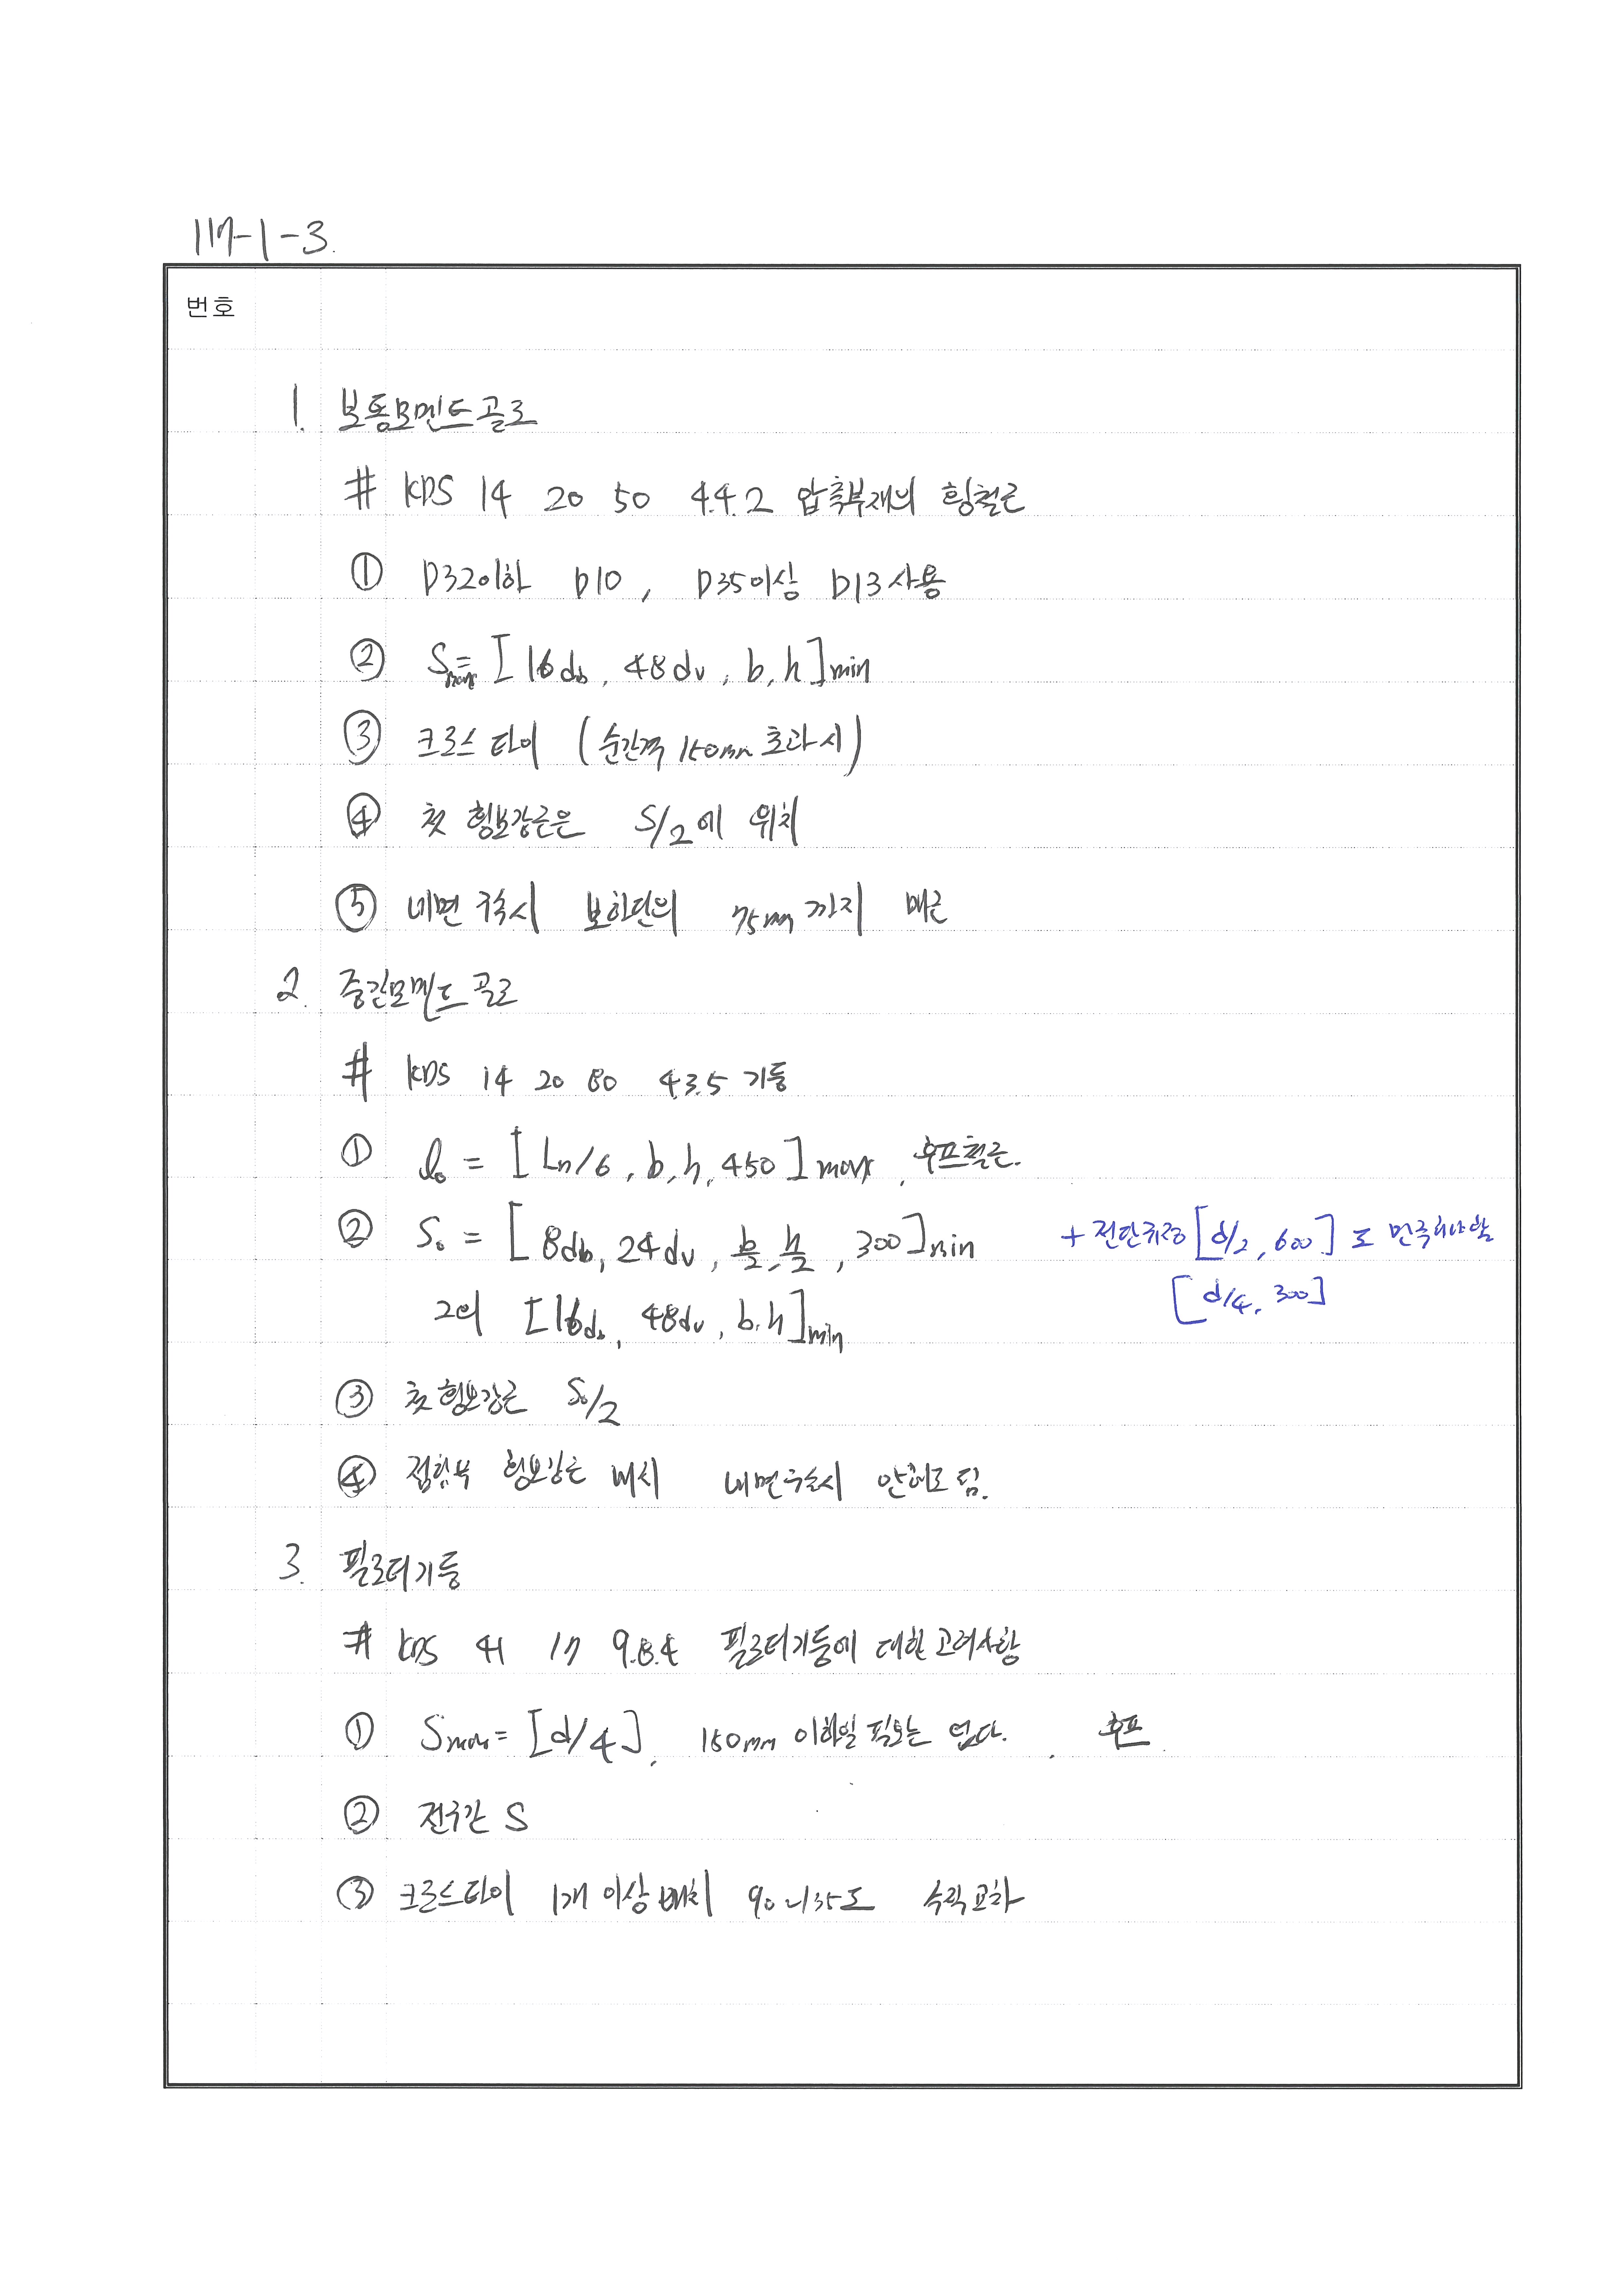 117-1-3.
번호
1. 보통모멘트골조
# KDS 14 20 50 4.4.2 압축부재의 횡철근
① D32이하 D10, D35이상 D13 사용
② Smax = [16db, 48dv, b, h]min
③ 크로스타이 (순간격 150mm 초과시)
④ 첫 횡보강근은 S/2에 위치
⑤ 네면 구속시 보하단의 75mm까지 배근
2. 중간모멘트골조
# KDS 14 20 80 4.3.5 기둥
① lo = [Ln/6, b, h, 450]max, 후프철근.
② So = [8db, 24dv, b/2, h/2, 300]min + 전단규정 [d/2, 600]도 만족해야함
[d/4, 300]
그외 [16db, 48dv, b, h]min
③ 첫 횡보강근 So/2
④ 접합부 횡보강근 배치 네면구속시 안해도 됨.
3. 필로티기둥
# KDS 41 17 9.8.4 필로티기둥에 대한 고려사항
① Smax = [d/4], 150mm 이하일 필요는 없다. , 후프
② 전구간 S
③ 크로스타이 1개 이상 배치 90 135도 수직교차